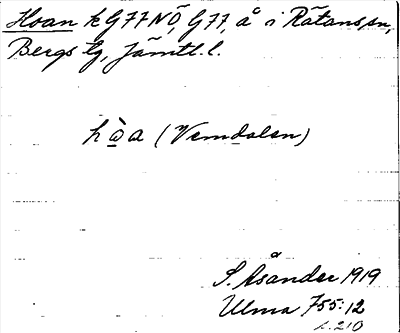 Hoan k G77NÖ, G77, å i Rätans sn,
Bergs tg, Jämtl. l.
hòa (Vemdalen)
S. Åsander 1919
Ulma 755:12
s. 210